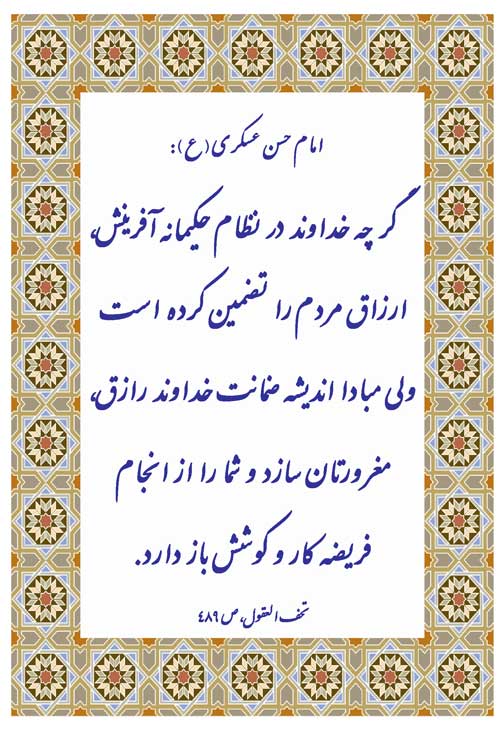 امام حسن عسکری (ع):
گر چه خداوند در نظام حکیمانه آفرینش،
ارزاق مردم را تضمین کرده است
ولی مبادا اندیشه ضمانت خداوند رازق،
مغرورتان سازد و شما را از انجام
فریضه کار و کوشش باز دارد.
تحف العقول، ص ۴۸۹